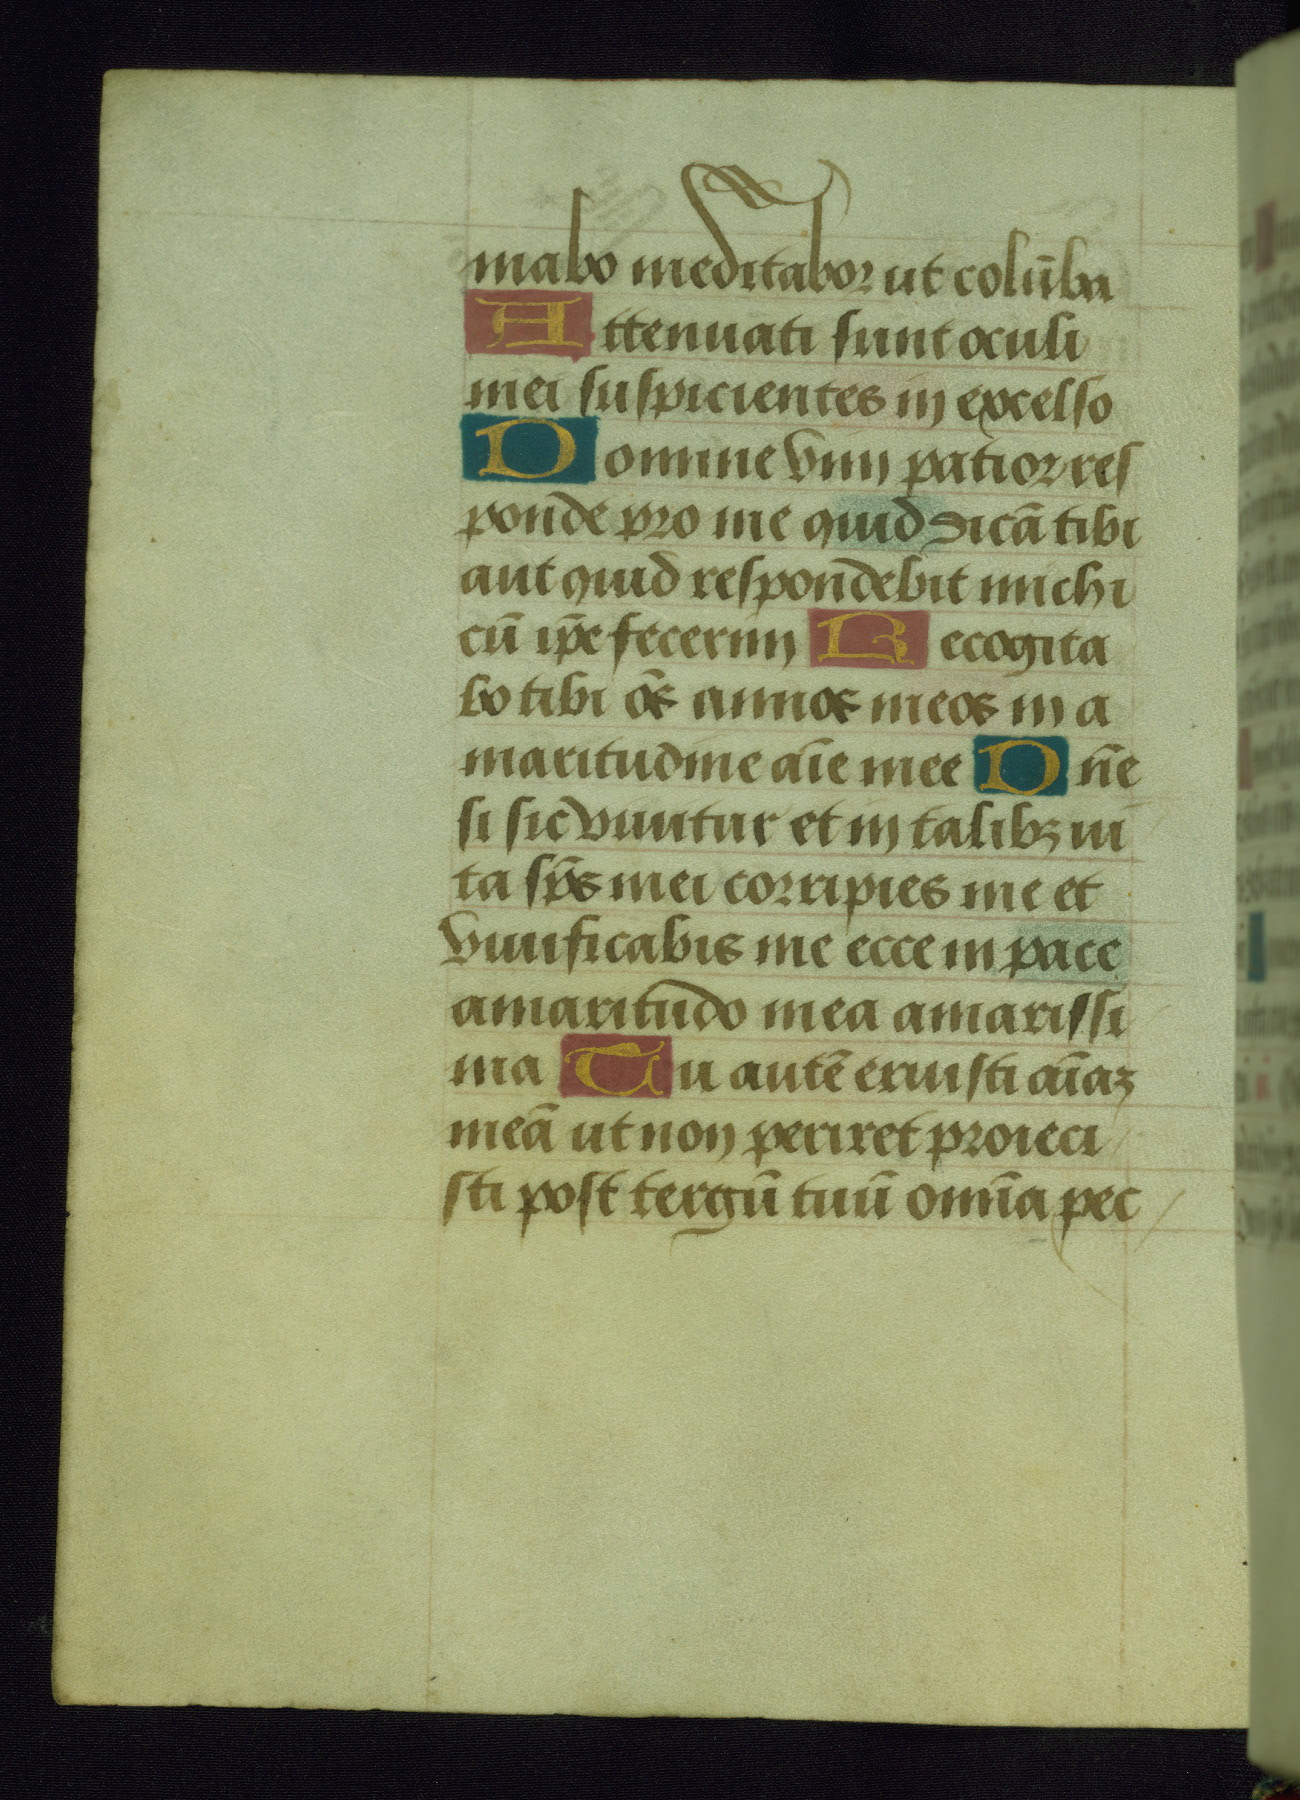 mabo meditabor ut colūba
Attenuati sunt oculi
mei suspicientes in excelso
Domine vim patior res
ponde pro me quid dicā tibi
aut quid respondebit michi
cū ip̄e fecerim Recogita
bo tibi o͞s annos meos in a
maritudine aīe mee Dn̄e
si sic viuitur et in talibꝫ ui
ta sp̄s mei corripies me et
viuificabis me ecce in pace
amaritudo mea amarissi
ma Tu autē eruisti aīaꝫ
meā ut non periret proieci
sti post tergū tuū omīa pec